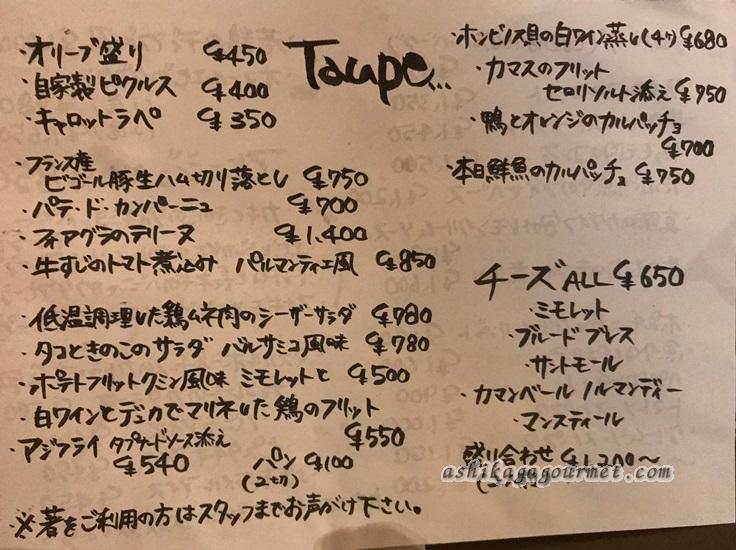 Taupe...
・オリーブ盛り ¥450
・自家製ピクルス ¥400
・キャロットラペ ¥350
・フランス産
ビゴール豚生ハム切り落とし ¥750
・パテ・ド・カンパーニュ ¥700
・フォアグラのテリーヌ ¥1,400
・牛すじのトマト煮込み パルマンティエ風 ¥850
・低温調理した鶏ムネ肉のシーザーサラダ ¥780
・タコときのこのサラダ バルサミコ風味 ¥780
・ポテトフリットクミン風味 ミモレットと ¥500
・白ワインとデュカでマリネした鶏のフリット
¥550
・アジフライ タプナードソース添え
¥540
パン ¥100
(2切)
※箸をご利用の方はスタッフまでお声がけ下さい。
・ホンビノス貝の白ワイン蒸し(4ケ) ¥680
・カマスのフリット
セロリソルト添え ¥750
・鴨とオレンジのカルパッチョ
¥700
・本日鮮魚のカルパッチョ ¥750
チーズALL ¥650
・ミモレット
・ブルードブレス
・サントモール
・カマンベール ノルマンディー
・マンスティール
盛り合わせ ¥1,200〜
ashikagagourmet.com